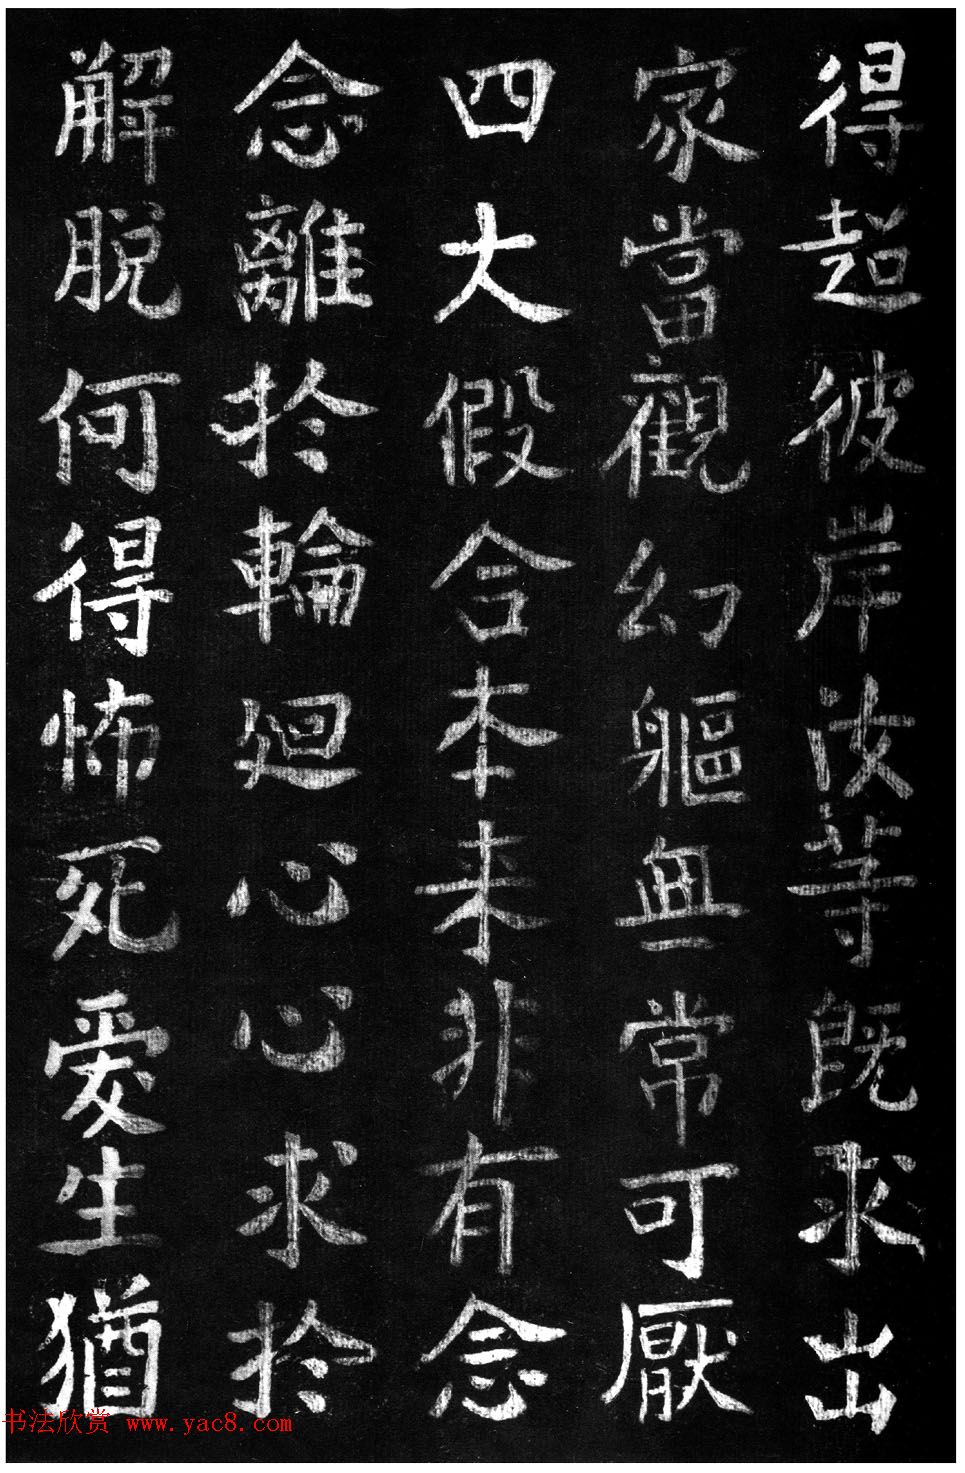 得超彼岸汝等既求出
家當觀幻軀無常可厭
四大假合本来非有念
念離於輪廻心心求於
解脫何得怖死愛生猶
书法欣赏 www.yac8.com